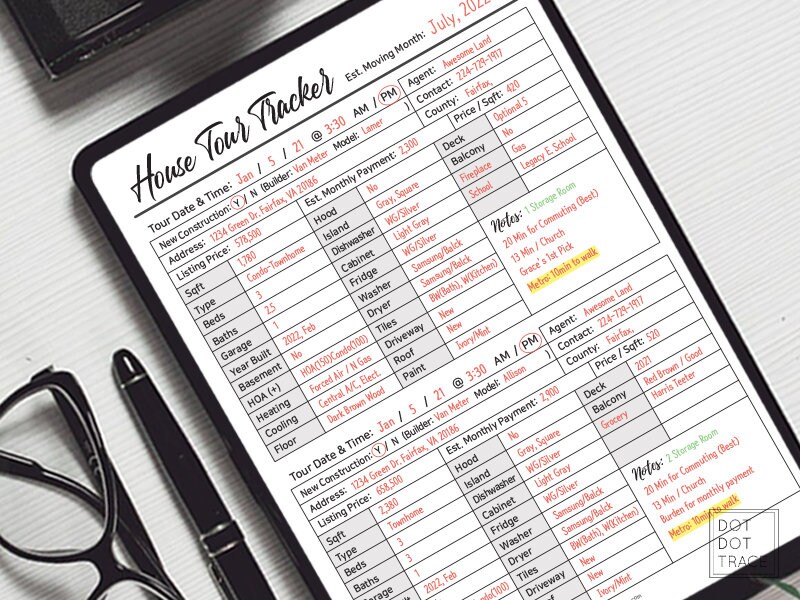 House Tour Tracker
Est. Moving Month: July, 2022
Tour Date & Time: Jan / 5 / 21 @ 3:30 AM / PM
New Construction: Y / N (Builder: Van Meter Model: Lamer )
Address: 1234 Green Dr. Fairfax, VA 20186
Listing Price: 578,500 Est. Monthly Payment: 2,300
Agent: Awesome Land
Contact: 224-729-1917
County: Fairfax,
Price / Sqft: 420
Sqft 1,780
Type Condo-Townhome
Beds 3
Baths 2.5
Garage 1
Year Built 2022, Feb
Basement No
HOA (+) HOA(150)Condo(100)
Heating Forced Air / N Gas
Cooling Central A/C, Elect.
Floor Dark Brown Wood
Hood No
Island Gray, Square
Dishwasher WG/Silver
Cabinet Light Gray
Fridge WG/Silver
Washer Samsung/Balck
Dryer Samsung/Balck
Tiles BW(Bath), W(Kitchen)
Driveway New
Roof New
Paint Ivory/Mint
Deck Optional S
Balcony No
Fireplace Gas
School Legacy E. School
Notes: 1 Storage Room
20 Min for Commuting (Best)
13 Min / Church
Grace's 1st Pick
Metro: 10min to walk
Tour Date & Time: Jan / 5 / 21 @ 3:30 AM / PM
New Construction: Y / N (Builder: Van Meter Model: Allison )
Address: 1234 Green Dr. Fairfax, VA 20186
Listing Price: 658,500 Est. Monthly Payment: 2,900
Agent: Awesome Land
Contact: 224-729-1917
County: Fairfax,
Price / Sqft: 520
Sqft 2,380
Type Townhome
Beds 3
Baths 3
Garage 1
2022, Feb
Hood No
Island Gray, Square
Dishwasher WG/Silver
Cabinet Light Gray
Fridge WG/Silver
Washer Samsung/Balck
Dryer Samsung/Balck
Tiles BW(Bath), W(Kitchen)
Driveway New
New
Ivory/Mint
Deck 2021
Balcony Red Brown / Good
Grocery Harris Teeter
Notes: 2 Storage Room
20 Min for Commuting (Best)
13 Min / Church
Burden for monthly payment
Metro: 10min to walk
DOT
DOT
TRACE